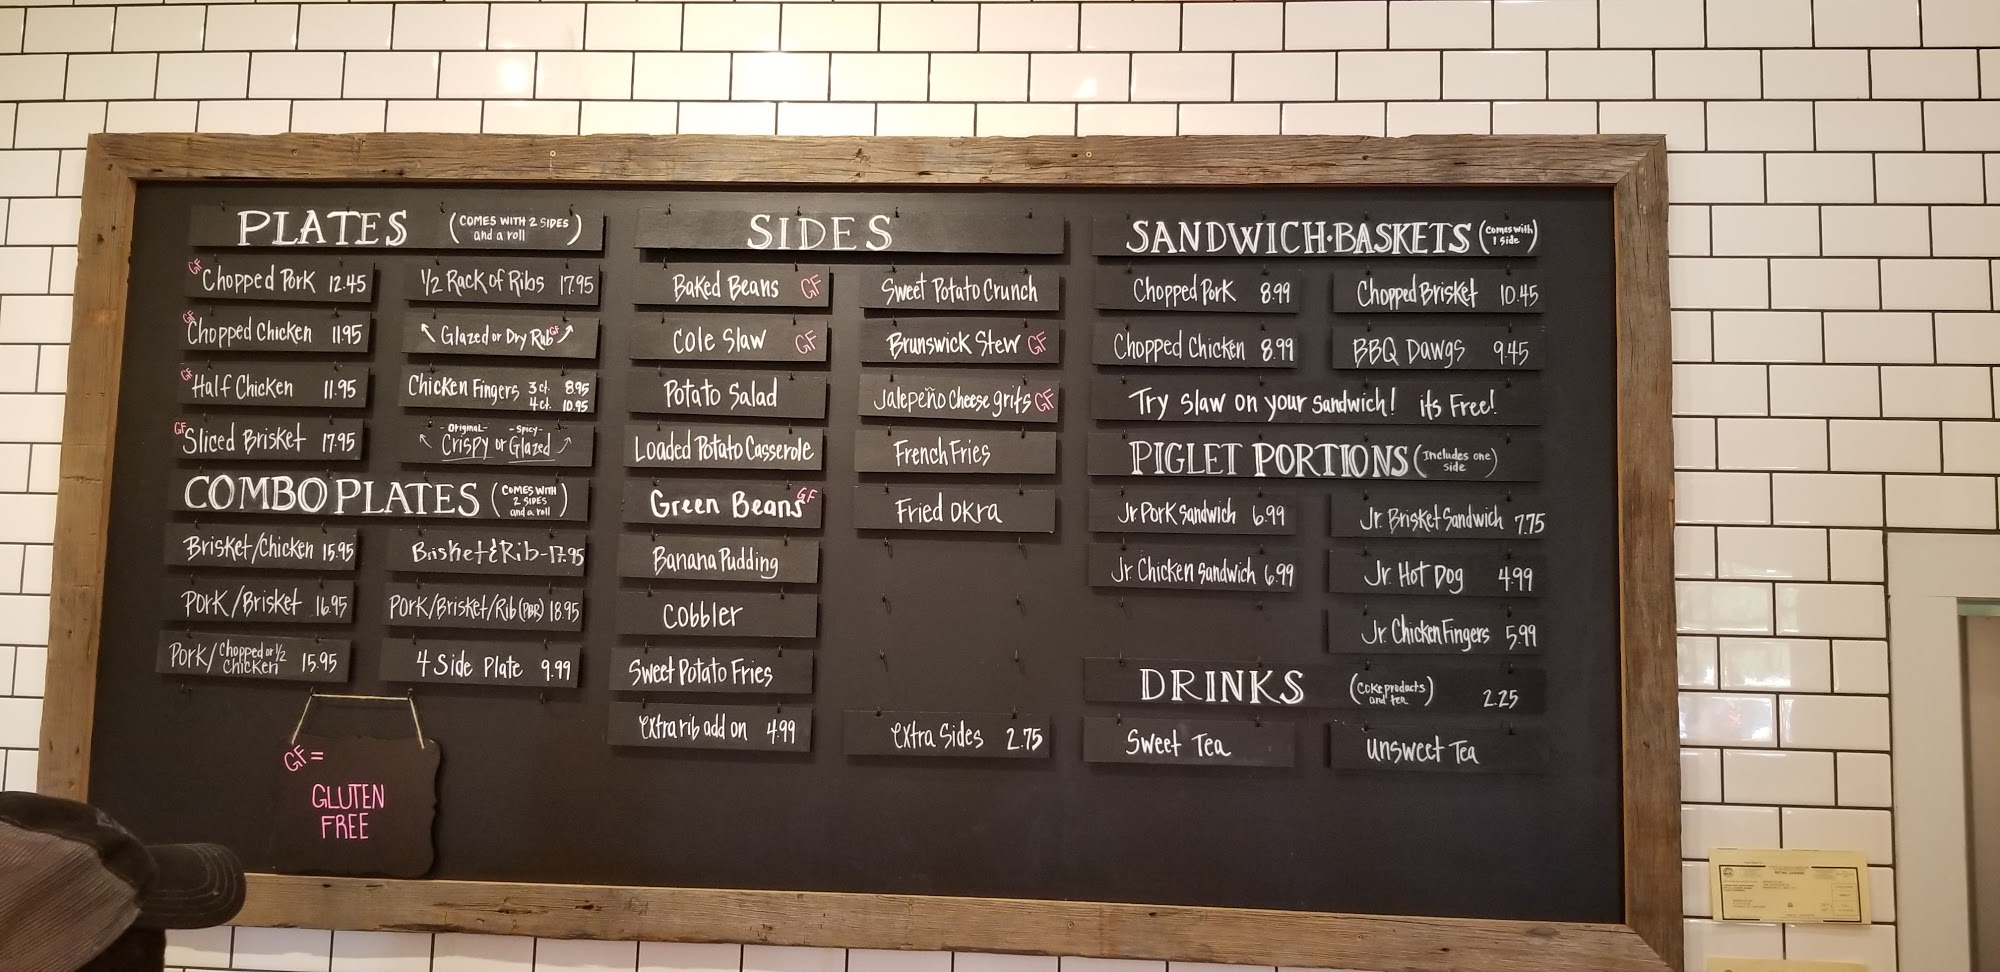 PLATES (COMES WITH 2 SIDES
and a roll)
GF Chopped Pork 12.45
GF Chopped Chicken 11.95
GF Half Chicken 11.95
GF Sliced Brisket 17.95
1/2 Rack of Ribs 17.95
Glazed or Dry Rub GF
Chicken Fingers 3 ct. 8.95
4 ct. 10.95
-Original- -Spicy-
Crispy or Glazed
COMBO PLATES (COMES WITH
2 SIDES
and a roll)
Brisket/Chicken 15.95
Pork/Brisket 16.95
Pork/Chopped or 1/2
Chicken 15.95
Brisket & Rib-17.95
Pork/Brisket/Rib (PBR) 18.95
4 Side Plate 9.99
GF =
GLUTEN
FREE
SIDES
Baked Beans GF
Cole Slaw GF
Potato Salad
Loaded Potato Casserole
Green Beans GF
Banana Pudding
Cobbler
Sweet Potato Fries
extra rib add on 4.99
Sweet Potato Crunch
Brunswick Stew GF
Jalepeño Cheese grits GF
French Fries
Fried Okra
extra Sides 2.75
SANDWICH·BASKETS (Comes with
1 Side)
Chopped Pork 8.99
Chopped Chicken 8.99
Chopped Brisket 10.45
BBQ Dawgs 9.45
Try slaw on your sandwich! its Free!
PIGLET PORTIONS (Includes one
side)
Jr Pork Sandwich 6.99
Jr. Chicken Sandwich 6.99
Jr. Brisket Sandwich 7.75
Jr. Hot Dog 4.99
Jr Chicken Fingers 5.99
DRINKS (Coke products
and tea) 2.25
Sweet Tea
Unsweet Tea